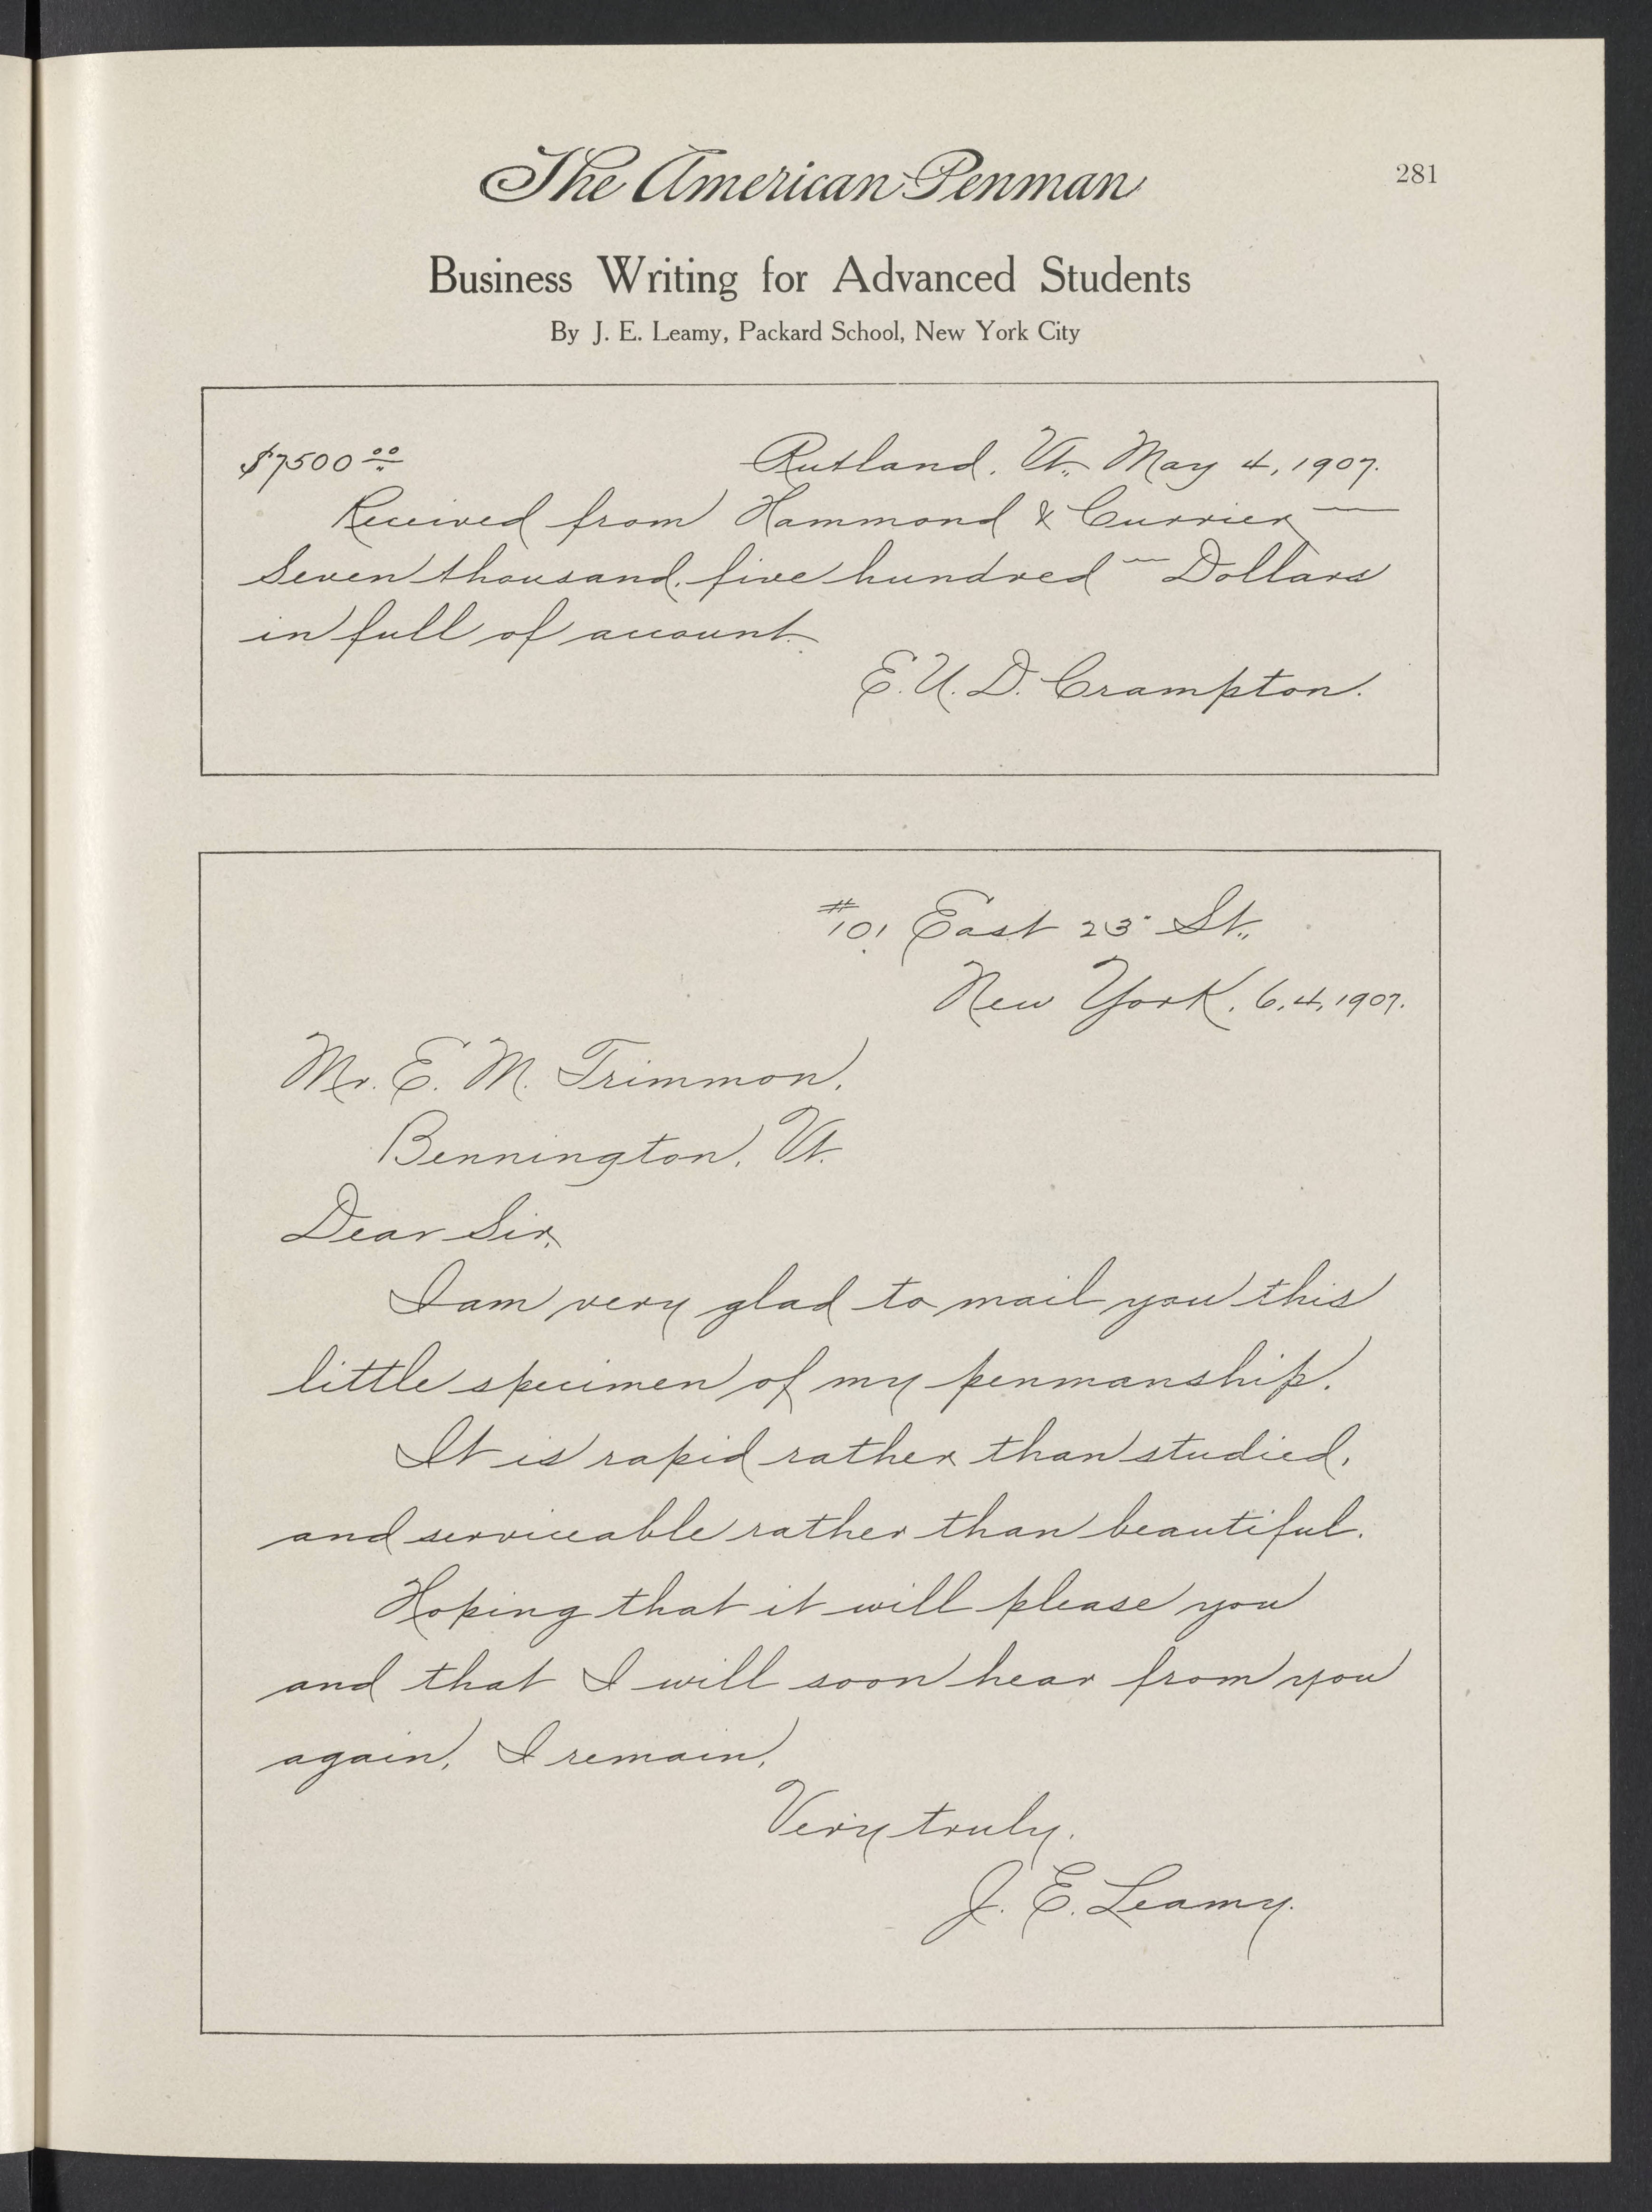 The American Penman
281
Business Writing for Advanced Students
By J. E. Leamy, Packard School, New York City
$7500 00
Rutland, Vt., May 4, 1907.
Received from Hammond & Currier
Seven thousand, five hundred — Dollars
in full of account.
E. U. D. Crampton.
#101 East 23" St.,
New York, 6, 4, 1907.
Mr. E. M. Trimmon,
Bennington, Vt.
Dear Sir,
I am very glad to mail you this
little specimen of my penmanship.
It is rapid rather than studied,
and serviceable rather than beautiful.
Hoping that it will please you
and that I will soon hear from you
again, I remain,
Very truly,
J. E. Leamy.